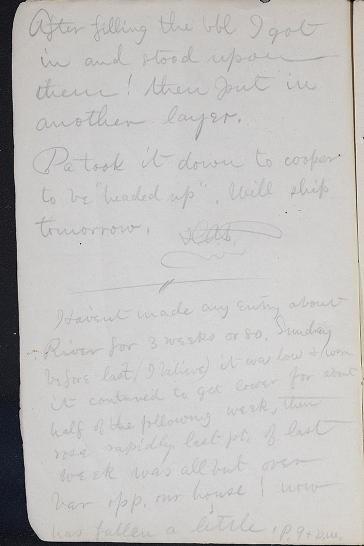 After filling the bbl I got
in and stood upon
them! then put in
another layer.
Pa took it down to cooper
to be "headed up". Will ship
tomorrow.
Havent made any entry about
River for 3 weeks or so. Sunday
before last (I believe) it was low &
it continued to get lower for about
half of the following week, then
rose rapidly last pt. of last
week was all but over
bar opp. our house! now
has fallen a little.